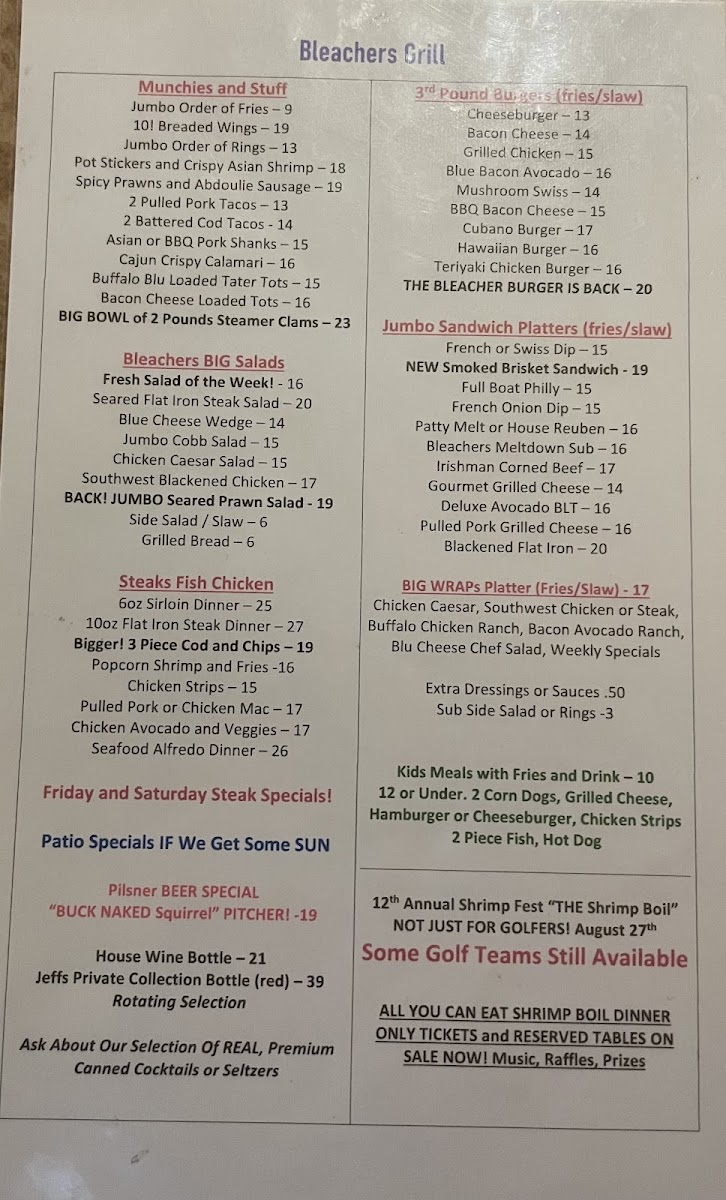 Bleachers Grill
Munchies and Stuff
Jumbo Order of Fries – 9
10! Breaded Wings – 19
Jumbo Order of Rings – 13
Pot Stickers and Crispy Asian Shrimp – 18
Spicy Prawns and Abdoulie Sausage – 19
2 Pulled Pork Tacos – 13
2 Battered Cod Tacos - 14
Asian or BBQ Pork Shanks – 15
Cajun Crispy Calamari – 16
Buffalo Blu Loaded Tater Tots – 15
Bacon Cheese Loaded Tots – 16
BIG BOWL of 2 Pounds Steamer Clams – 23
Bleachers BIG Salads
Fresh Salad of the Week! - 16
Seared Flat Iron Steak Salad – 20
Blue Cheese Wedge – 14
Jumbo Cobb Salad – 15
Chicken Caesar Salad – 15
Southwest Blackened Chicken – 17
BACK! JUMBO Seared Prawn Salad - 19
Side Salad / Slaw – 6
Grilled Bread – 6
Steaks Fish Chicken
6oz Sirloin Dinner – 25
10oz Flat Iron Steak Dinner – 27
Bigger! 3 Piece Cod and Chips – 19
Popcorn Shrimp and Fries -16
Chicken Strips – 15
Pulled Pork or Chicken Mac – 17
Chicken Avocado and Veggies – 17
Seafood Alfredo Dinner – 26
Friday and Saturday Steak Specials!
Patio Specials IF We Get Some SUN
Pilsner BEER SPECIAL
“BUCK NAKED Squirrel” PITCHER! -19
House Wine Bottle – 21
Jeffs Private Collection Bottle (red) – 39
Rotating Selection
Ask About Our Selection Of REAL, Premium
Canned Cocktails or Seltzers
3rd Pound Burgers (fries/slaw)
Cheeseburger – 13
Bacon Cheese – 14
Grilled Chicken – 15
Blue Bacon Avocado – 16
Mushroom Swiss – 14
BBQ Bacon Cheese – 15
Cubano Burger – 17
Hawaiian Burger – 16
Teriyaki Chicken Burger – 16
THE BLEACHER BURGER IS BACK – 20
Jumbo Sandwich Platters (fries/slaw)
French or Swiss Dip – 15
NEW Smoked Brisket Sandwich - 19
Full Boat Philly – 15
French Onion Dip – 15
Patty Melt or House Reuben – 16
Bleachers Meltdown Sub – 16
Irishman Corned Beef – 17
Gourmet Grilled Cheese – 14
Deluxe Avocado BLT – 16
Pulled Pork Grilled Cheese – 16
Blackened Flat Iron – 20
BIG WRAPs Platter (Fries/Slaw) - 17
Chicken Caesar, Southwest Chicken or Steak,
Buffalo Chicken Ranch, Bacon Avocado Ranch,
Blu Cheese Chef Salad, Weekly Specials
Extra Dressings or Sauces .50
Sub Side Salad or Rings -3
Kids Meals with Fries and Drink – 10
12 or Under. 2 Corn Dogs, Grilled Cheese,
Hamburger or Cheeseburger, Chicken Strips
2 Piece Fish, Hot Dog
12th Annual Shrimp Fest “THE Shrimp Boil”
NOT JUST FOR GOLFERS! August 27th
Some Golf Teams Still Available
ALL YOU CAN EAT SHRIMP BOIL DINNER
ONLY TICKETS and RESERVED TABLES ON
SALE NOW! Music, Raffles, Prizes